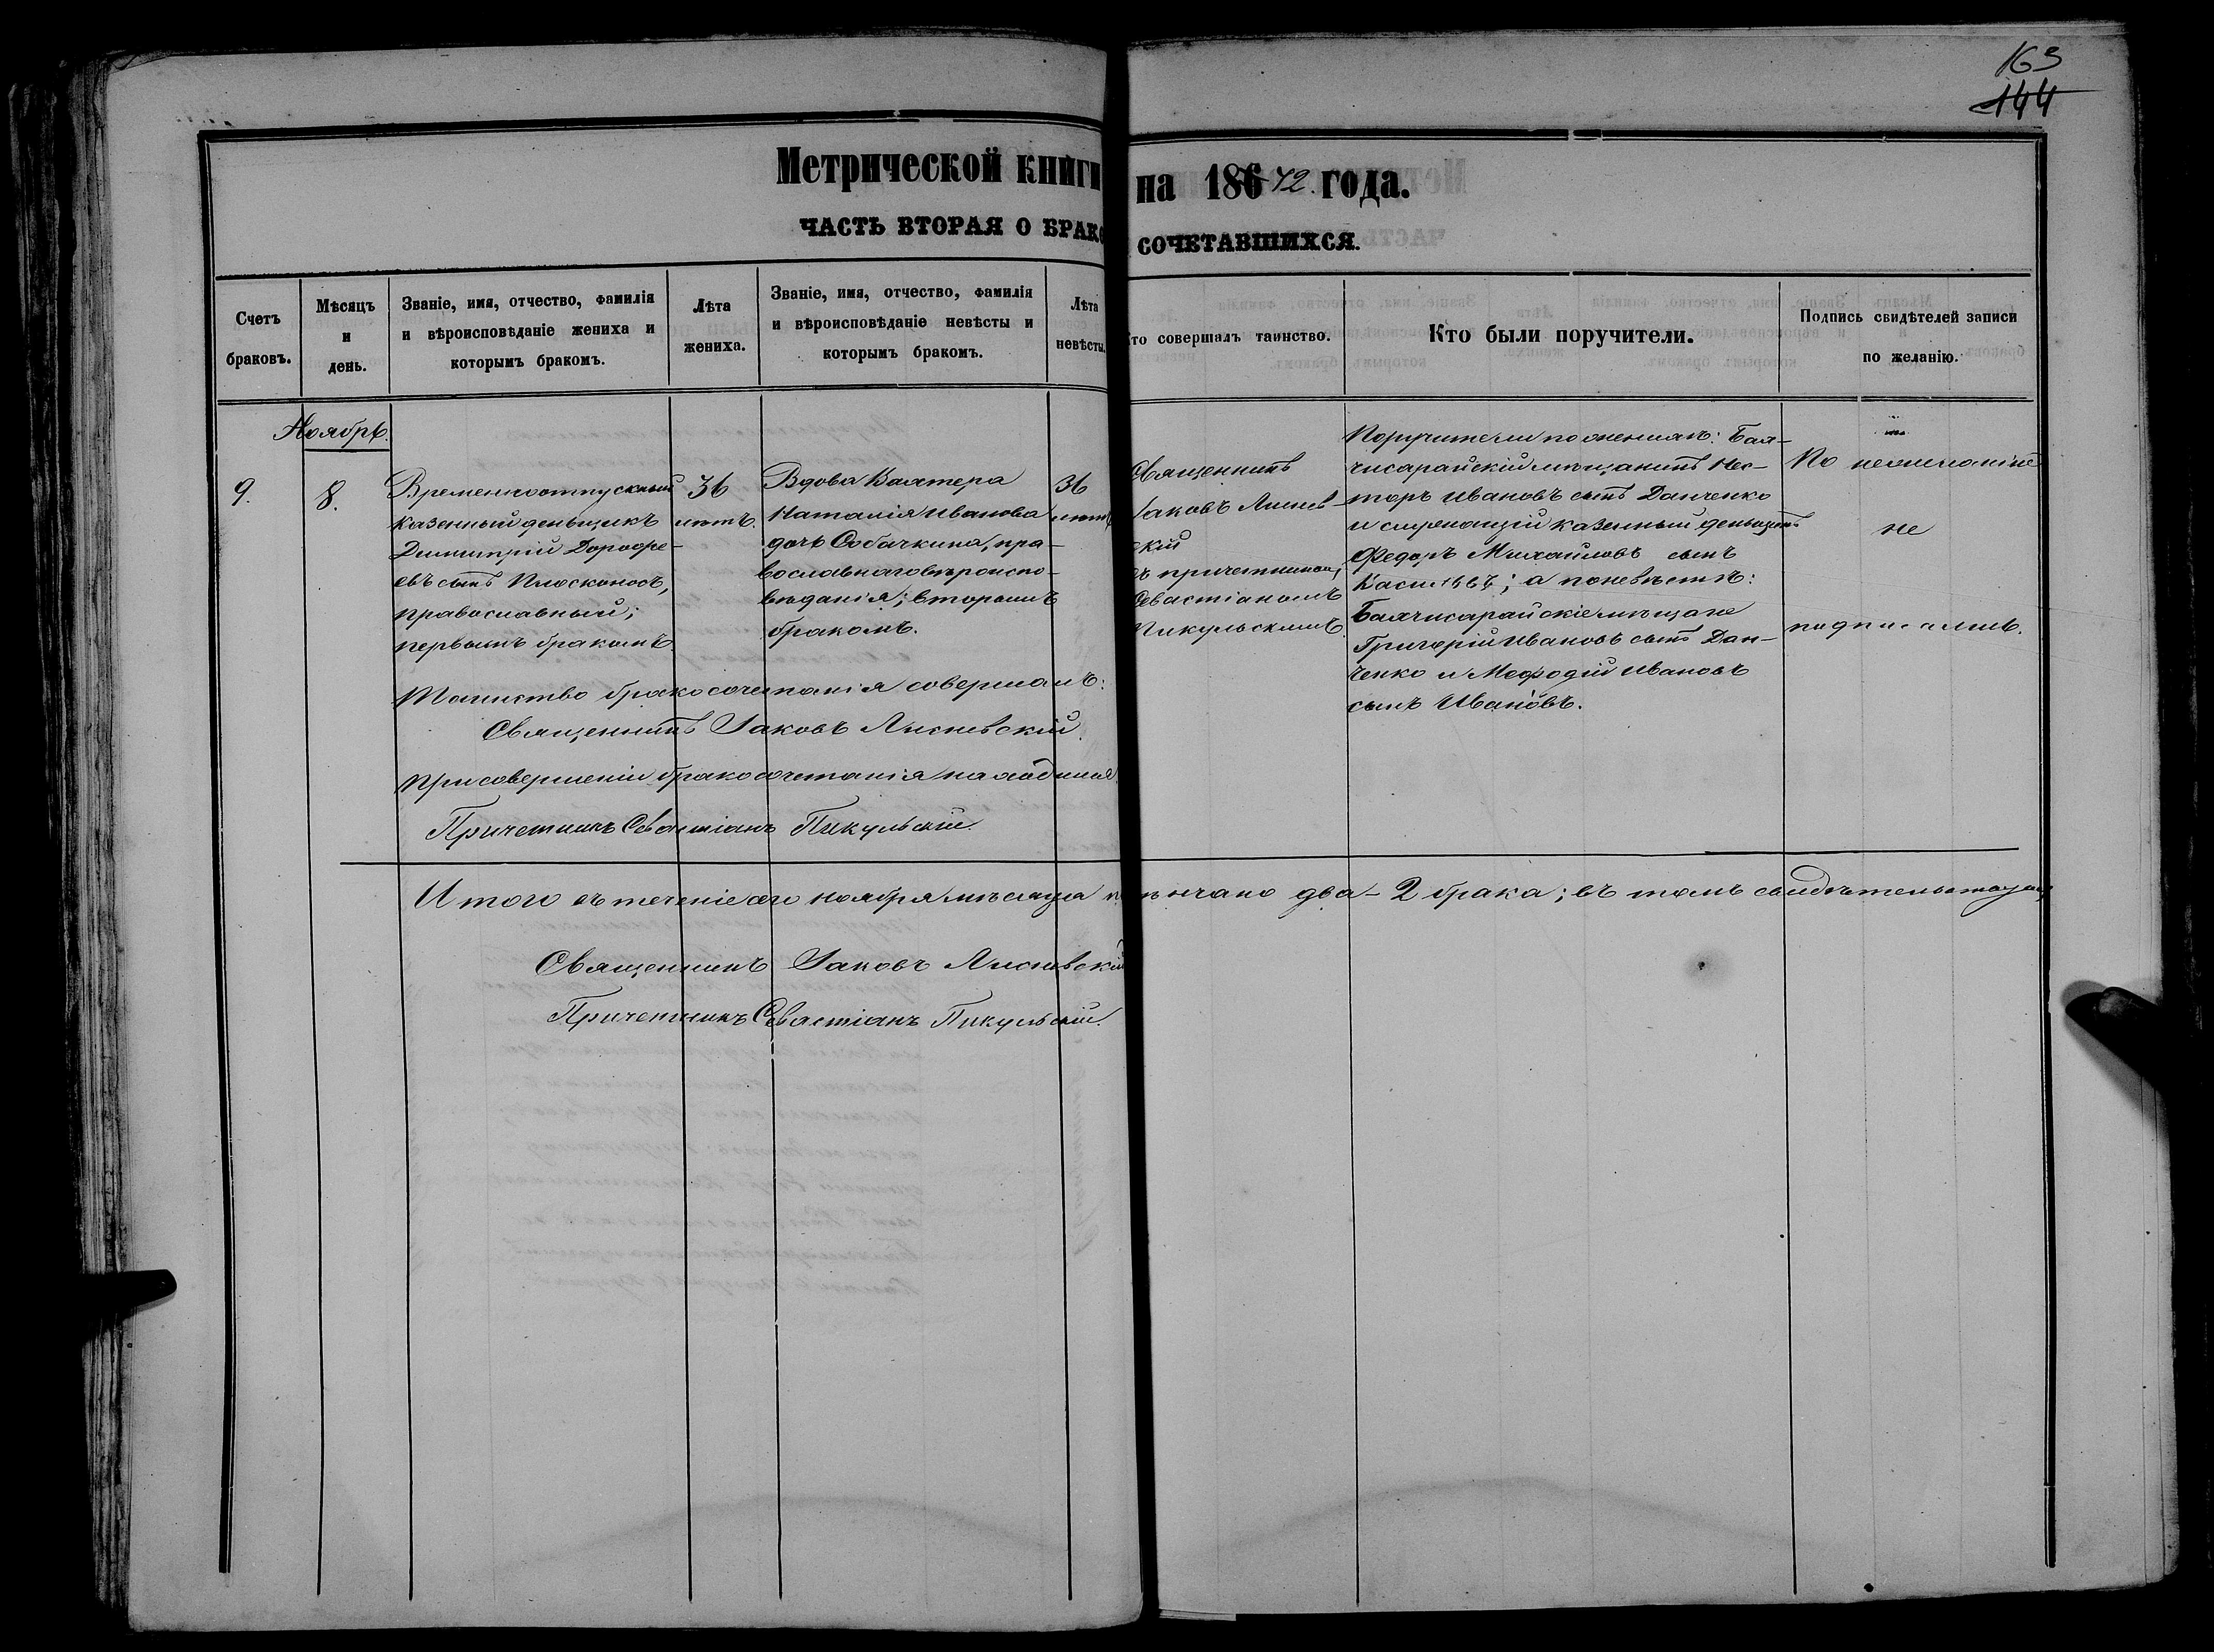 163
144
Метрической книги на 18672 года.
ЧАСТЬ ВТОРАЯ О БРАКОСОЧЕТАВШИХСЯ.
Счетъ браковъ.
Мѣсяцъ и день.
Званіе, имя, отчество, фамилія
и вѣроисповѣданіе жениха и
которымъ бракомъ.
Лѣта жениха.
Званіе, имя, отчество, фамилія
и вѣроисповѣданіе невѣсты и
которымъ бракомъ.
Лѣта невѣсты.
Кто совершалъ таинство.
Кто были поручители.
Подпись свидѣтелей записи
по желанію.
Ноябрь.
9.
8.
Временноотпускный
казенный деньщикъ
Димитрій Дорофе-
евъ сынъ Плосконосъ,
православный;
первымъ бракомъ.
36
лѣтъ.
Вдова Вахтера
Наталія Иванова
дочь Собачкина, пра-
вославнаго вѣроиспо-
вѣданія; вторымъ
бракомъ.
36
лѣтъ
Священникъ
Іаковъ Лиснев-
скій
съ причетникомъ
Севастіаномъ
Пикульскимъ.
Поручители по женихѣ: Бах-
чисарайскій мѣщанинъ Нес-
торъ Ивановъ сынъ Данченко
и служащій казенный деньщикъ
Федоръ Михайловъ сынъ
а по невѣстѣ:
Бахчисарайскіе мѣщане
Григорій Ивановъ сынъ Дан-
ченко и Мефодій Ивановъ
сынъ Ивановъ.
По неграмотію
не
подписались.
Таинство бракосочетанія совершалъ:
Священникъ Іаковъ Лисневскій.
При совершеніи бракосочетанія находился
Причетникъ Севастіанъ Пикульскій.
Итого въ теченіе сего ноября мѣсяца повѣнчано два – 2 брака; въ томъ свидѣтельствуютъ
Священникъ Іаковъ Лисневскій
Причетникъ Севастіанъ Пикульскій.